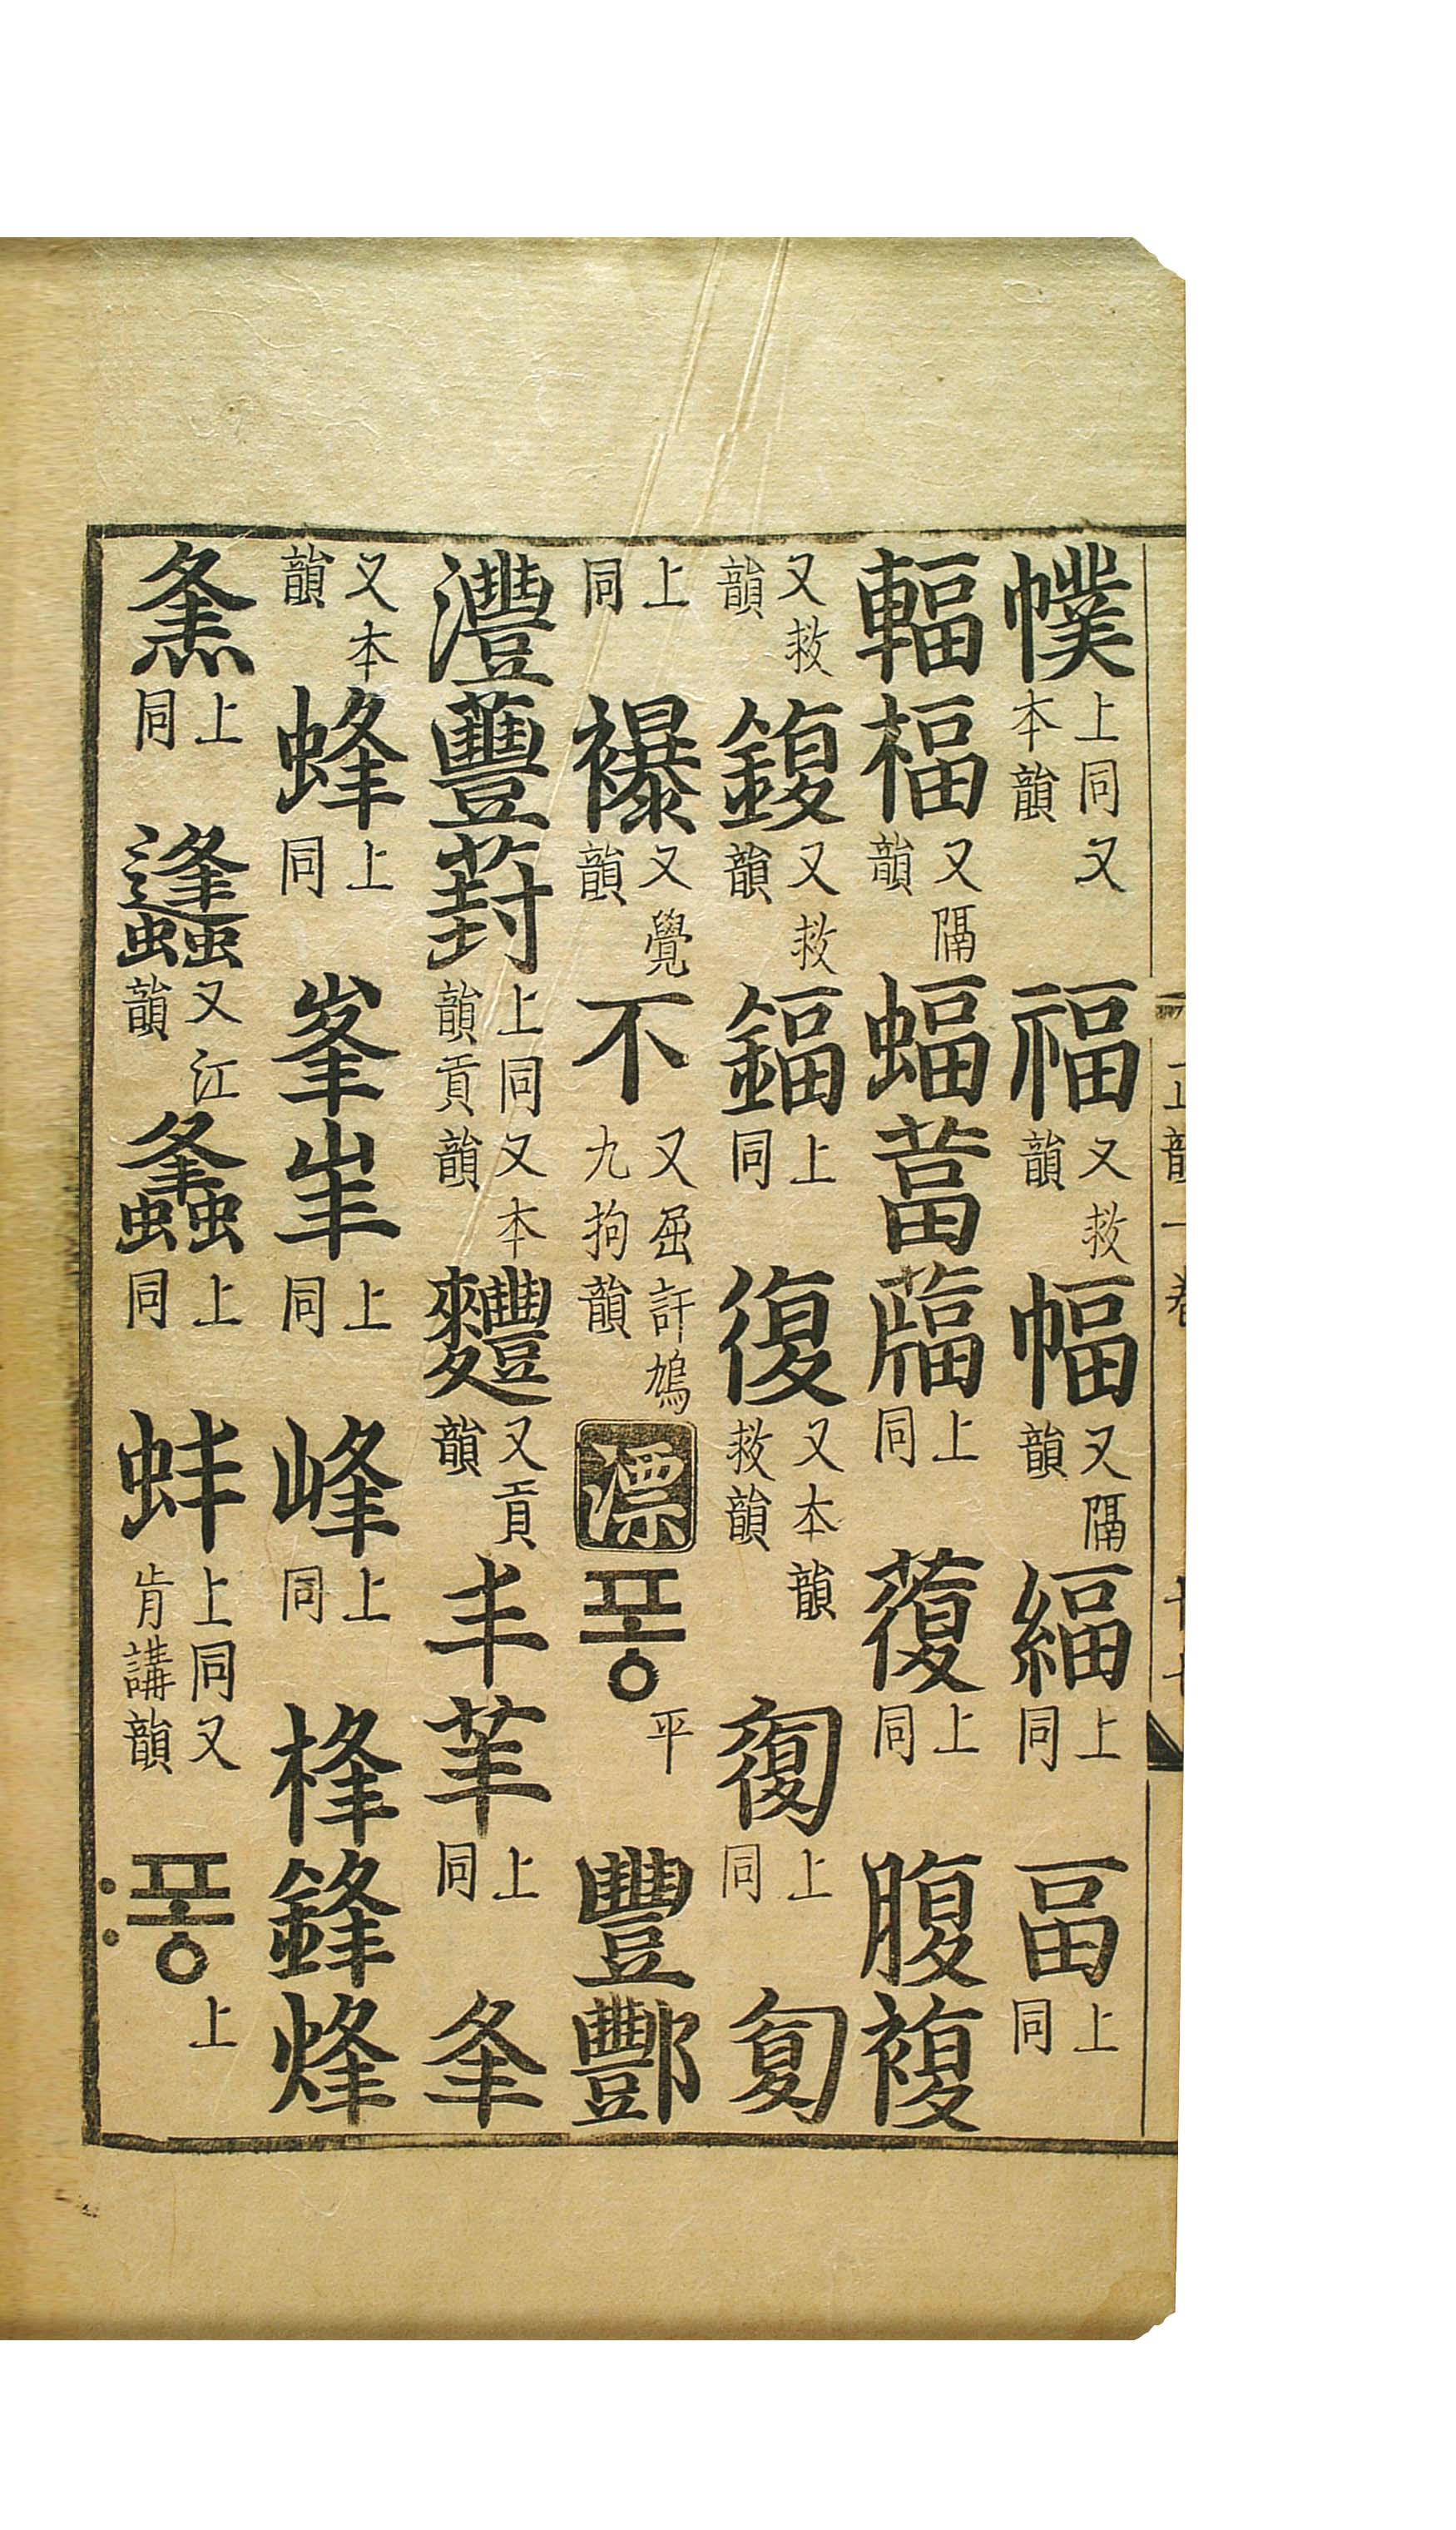 幞上同又本韻福又救韻幅又隔韻上同畐上同
輻楅又隔韻蝠葍上同蕧上同腹複
又救韻鍑又救韻鍢上同復又本韻救韻上同
上同襮又覺韻不又屈許鳩九拘韻漂풍平豐酆
灃蘴葑上同韻貢又本韻麷又貢韻丰上同夆
又本韻蜂上同峯上同峰上同桻鋒烽
上同蠭又江韻上同蚌上同又肯講韻풍上